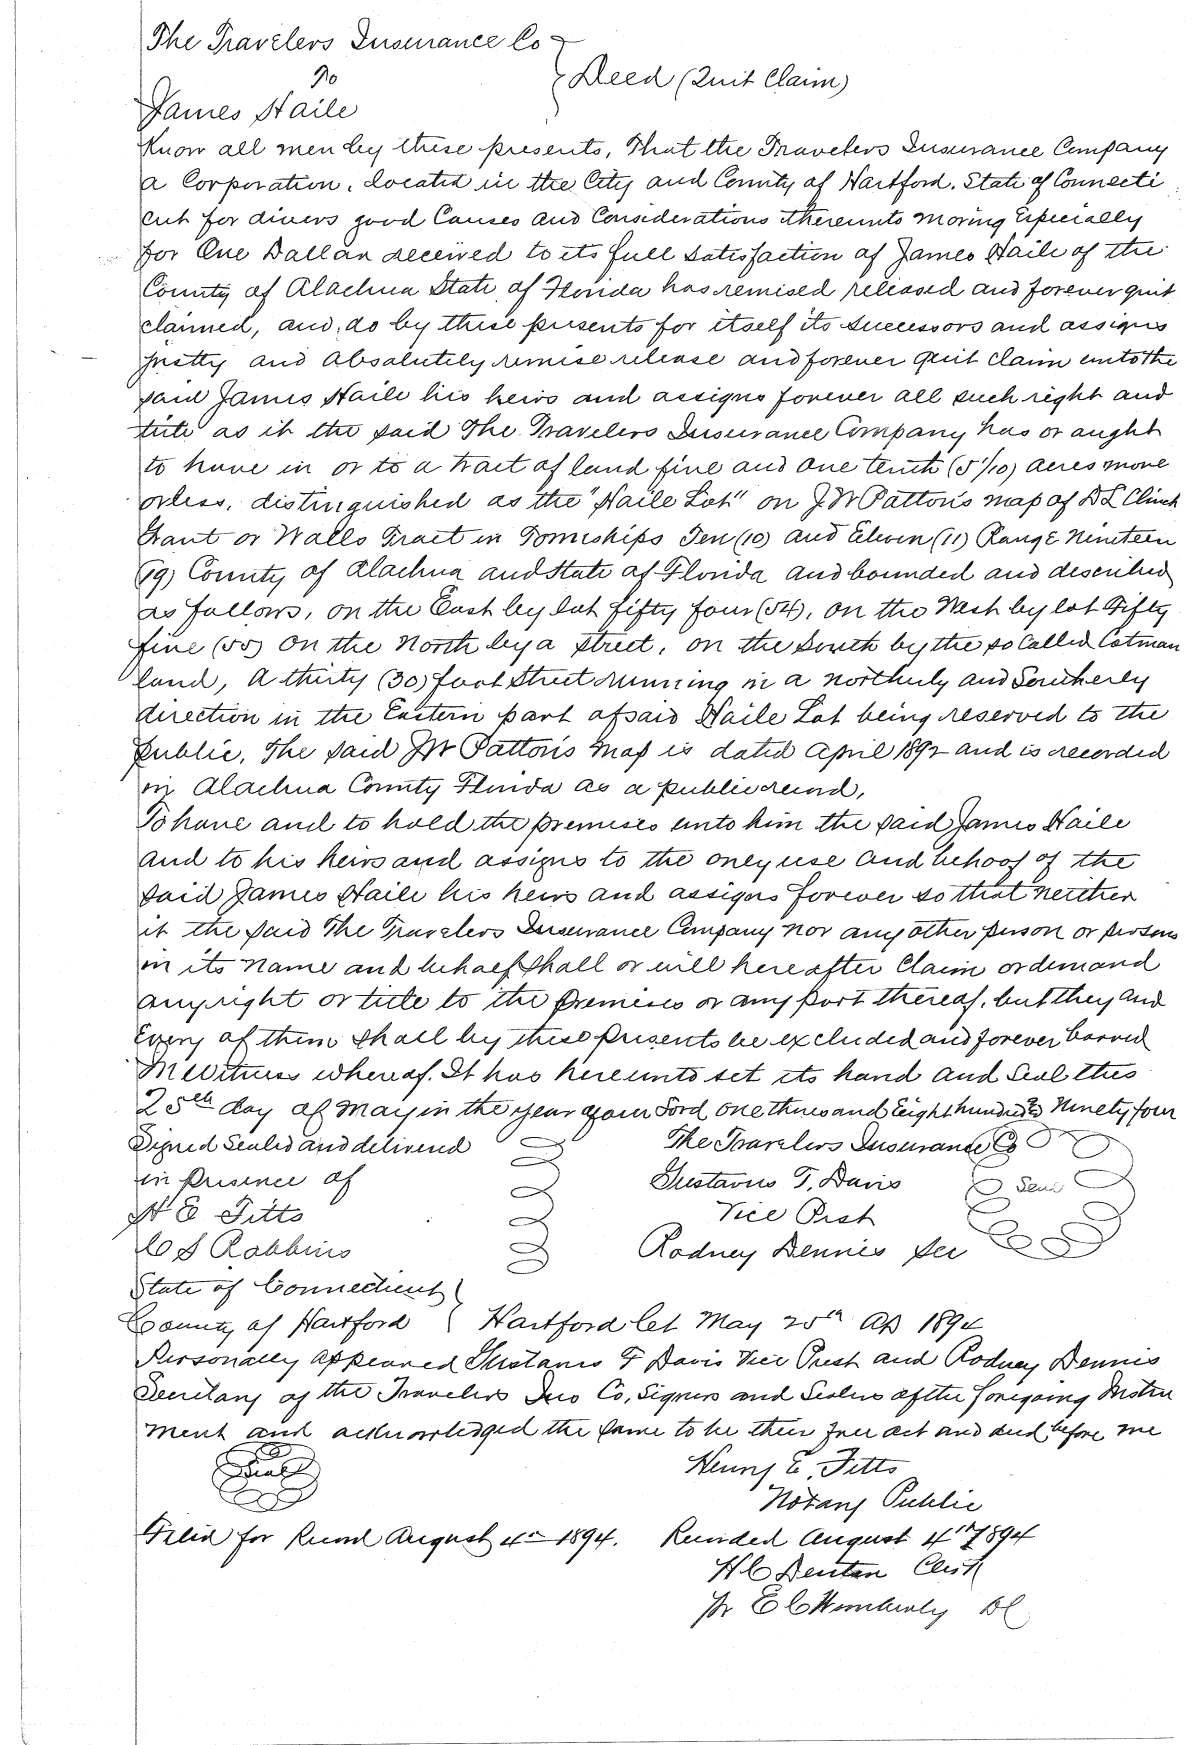 The Travelers Insurance Co
To
Deed (Quit Claim)
James Haile
Know all men by these presents, That the Travelers Insurance Company
a Corporation, located in the City and County of Hartford, State of Connecti
cut for divers good Causes and Considerations thereunto moving Especially
for One Dollar received to its full satisfaction of James Haile of the
County of Alachua State of Florida has remised released and forever quit
claimed, and, do by these presents for itself its successors and assigns
justly and absolutely remise release and forever quit claim unto the
said James Haile his heirs and assigns forever all such right and
title as it the said The Travelers Insurance Company has or aught
to have in or to a tract of land five and one tenth (5 1/10) acres more
or less, distinguished as the "Haile Lot" on J W Patton's map of D L Clinch
Grant or Walls Tract in Townships Ten (10) and Eleven (11) Range Nineteen
(19) County of Alachua and State of Florida and bounded and described
as follows, on the East by lot fifty four (54), on the West by lot Fifty
five (55) on the North by a street, on the South by the so called Cotman
land, A thirty (30) foot Street running in a northerly and Southerly
direction in the Eastern part of said Haile Lot being reserved to the
public, The said J W Patton's map is dated April 1892 and is recorded
in Alachua County Florida as a public record,
To have and to hold the premises unto him the said James Haile
and to his heirs and assigns to the only use and behoof of the
said James Haile his heirs and assigns forever so that neither
it the said The Travelers Insurance Company nor any other person or persons
in its name and behalf shall or will hereafter claim or demand
any right or title to the premises or any part thereof, but they and
Every of them shall by these presents be excluded and forever barred
In Witness whereof, It has hereunto set its hand and Seal this
25th day of May in the year of our Lord one thousand Eight hundred Ninety four
Signed Sealed and delivered The Travelers Insurance Co
in presence of Gustavus F. Davis Seal
H E Fitts Vice Prest
C S Robbins Rodney Dennis Sec
State of Connecticut
County of Hartford Hartford Ct May 25th AD 1894
Personally appeared Gustavus F Davis Vice Prest and Rodney Dennis
Secretary of the Travelers Ins Co, Signers and Sealers of the foregoing Instru
ment and acknowledged the same to be their free act and deed before me
Seal Henry E. Fitts
Notary Public
Filed for Record August 4th 1894. Recorded August 4th 1894
H C Denton Clerk
Pr E C Wimberly DC